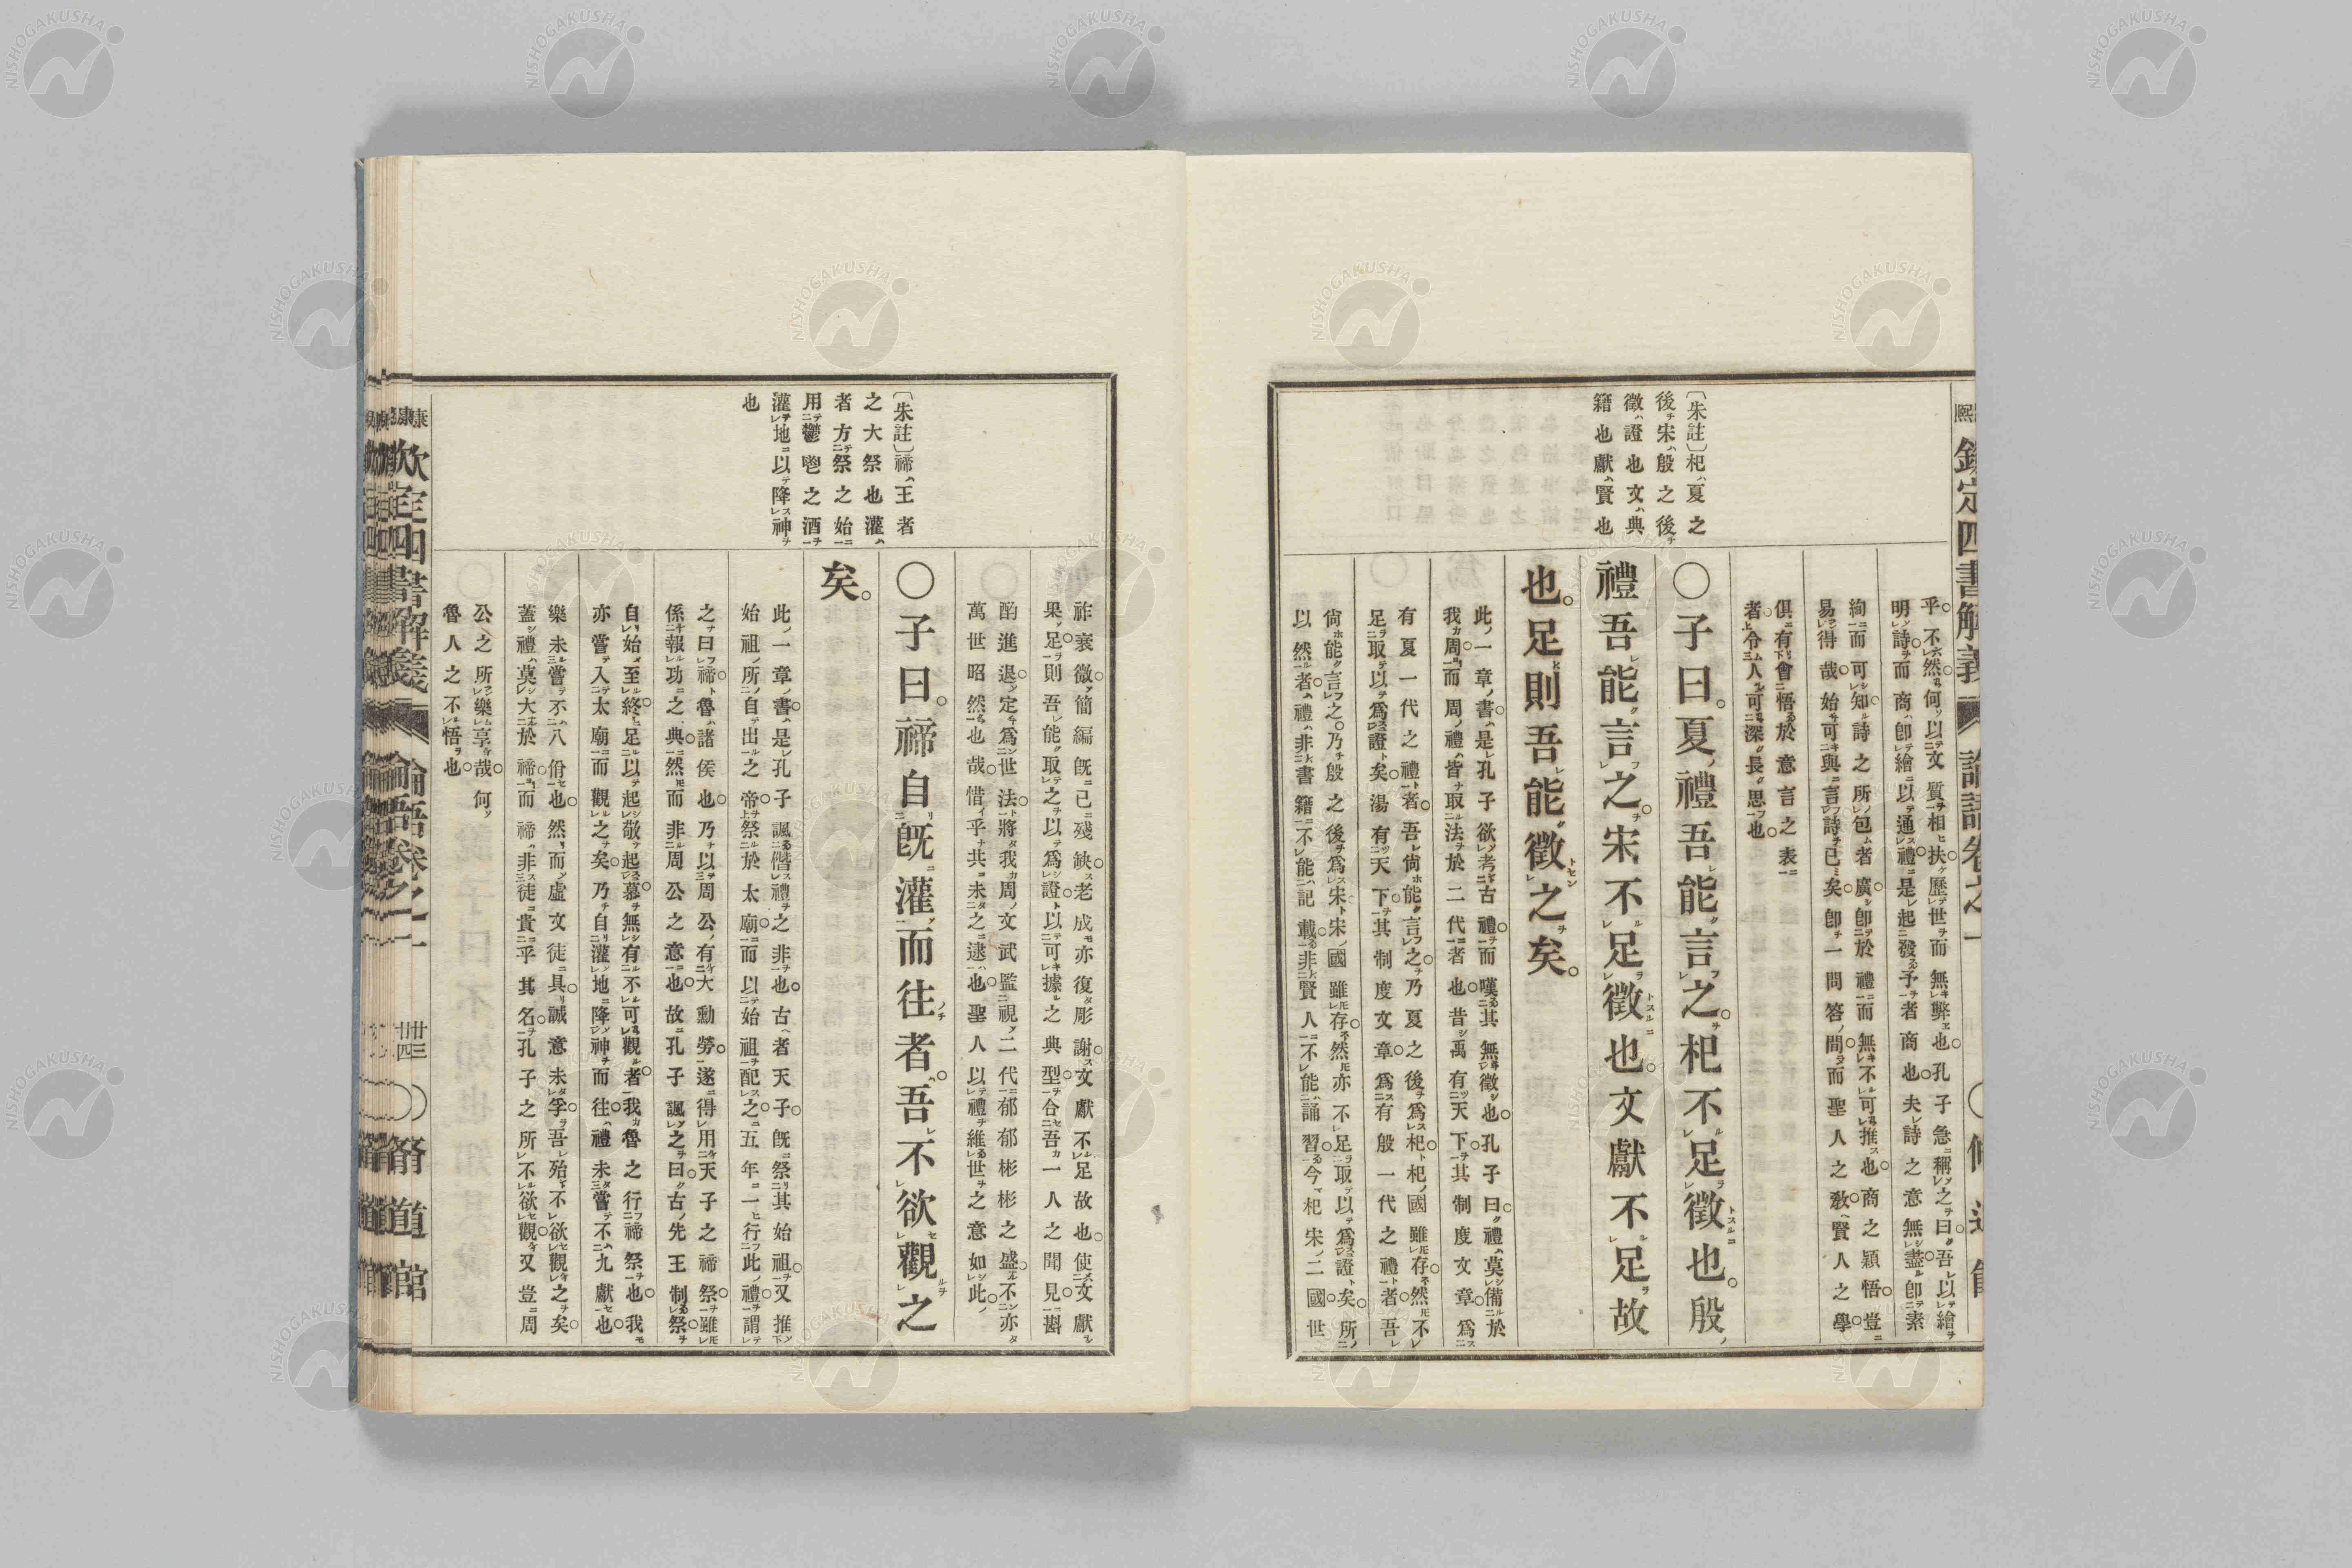 欽定四書解義 論語卷之一
乎。不然。何以文質相扶。歷世而無弊也。孔子急稱之曰。吾以繪
明詩。而商卽繪以通禮。是起發予者商也。夫詩之意無盡。卽素
絢而可知。詩之所包者廣。卽於禮而無不可推也。商之穎悟。豈
易得哉。始可與言詩已矣。卽一問答間。而聖人之敎。賢人之學。
俱有會悟於意言之表
者。令人可深長思也。
〔朱註〕杞夏之
後宋殷之後
徵證也文典
籍也獻賢也
〇子曰。夏禮吾能言之。杞不足徵也。殷
禮吾能言之。宋不足徵也。文獻不足故
也。足則吾能徵之矣。
此一章書。是孔子欲考古禮而嘆其無徵也。孔子曰。禮莫備於
我周。而周禮皆取法於二代者也。昔禹有天下。其制度文章。爲
有夏一代之禮者。吾尙能言之。乃夏之後爲杞。杞國雖存。然不
足取以爲證矣。湯有天下。其制度文章。爲有殷一代之禮者。吾
尙能言之。乃殷之後爲宋。宋國雖存。然亦不足取以爲證矣。所
以然者。禮非書籍不能記載。非賢人不能誦習。今杞宋二國。世
祚衰微。簡編旣已殘缺。老成亦復彫謝。文獻不足故也。使文獻
果足。則吾能取之以爲證。以可據之典型。合吾一人之聞見。斟
酌進退。定爲世法。將我周文武監視二代。郁郁彬彬之盛。不亦
萬世昭然也哉。惜乎其未之逮也。聖人以禮維世之意如此。
〔朱註〕禘王者
之大祭也灌
者方祭之始
用鬱鬯之酒
灌地以降神
也
〇子曰。禘自旣灌而往者。吾不欲觀之
矣。
此一章書。是孔子諷僭禮之非也。古者天子旣祭其始祖。又推
始祖所自出之帝。祭於太廟。而以始祖配之。五年一行此禮。謂
之曰禘。魯諸侯也。乃以周公有大勳勞。遂得用天子之禘祭。雖
係報功之典。然而非周公之意也。故孔子諷之曰。古先王制祭。
自始至終。足以起敬起慕。無有不可觀者。我魯之行禘祭也。我
亦嘗入太廟而觀之矣。乃自灌地降神而往。禮未嘗不九獻也。
樂未嘗不八佾也。然而虛文徒具。誠意未孚。吾殆不欲觀之矣。
蓋禮莫大於禘。而禘非徒貴乎其名。孔子之所不欲觀。又豈周
公之所樂享哉。何
魯人之不悟也。
欽定四書解義 論語卷之一 卅三 脩道館
卅四